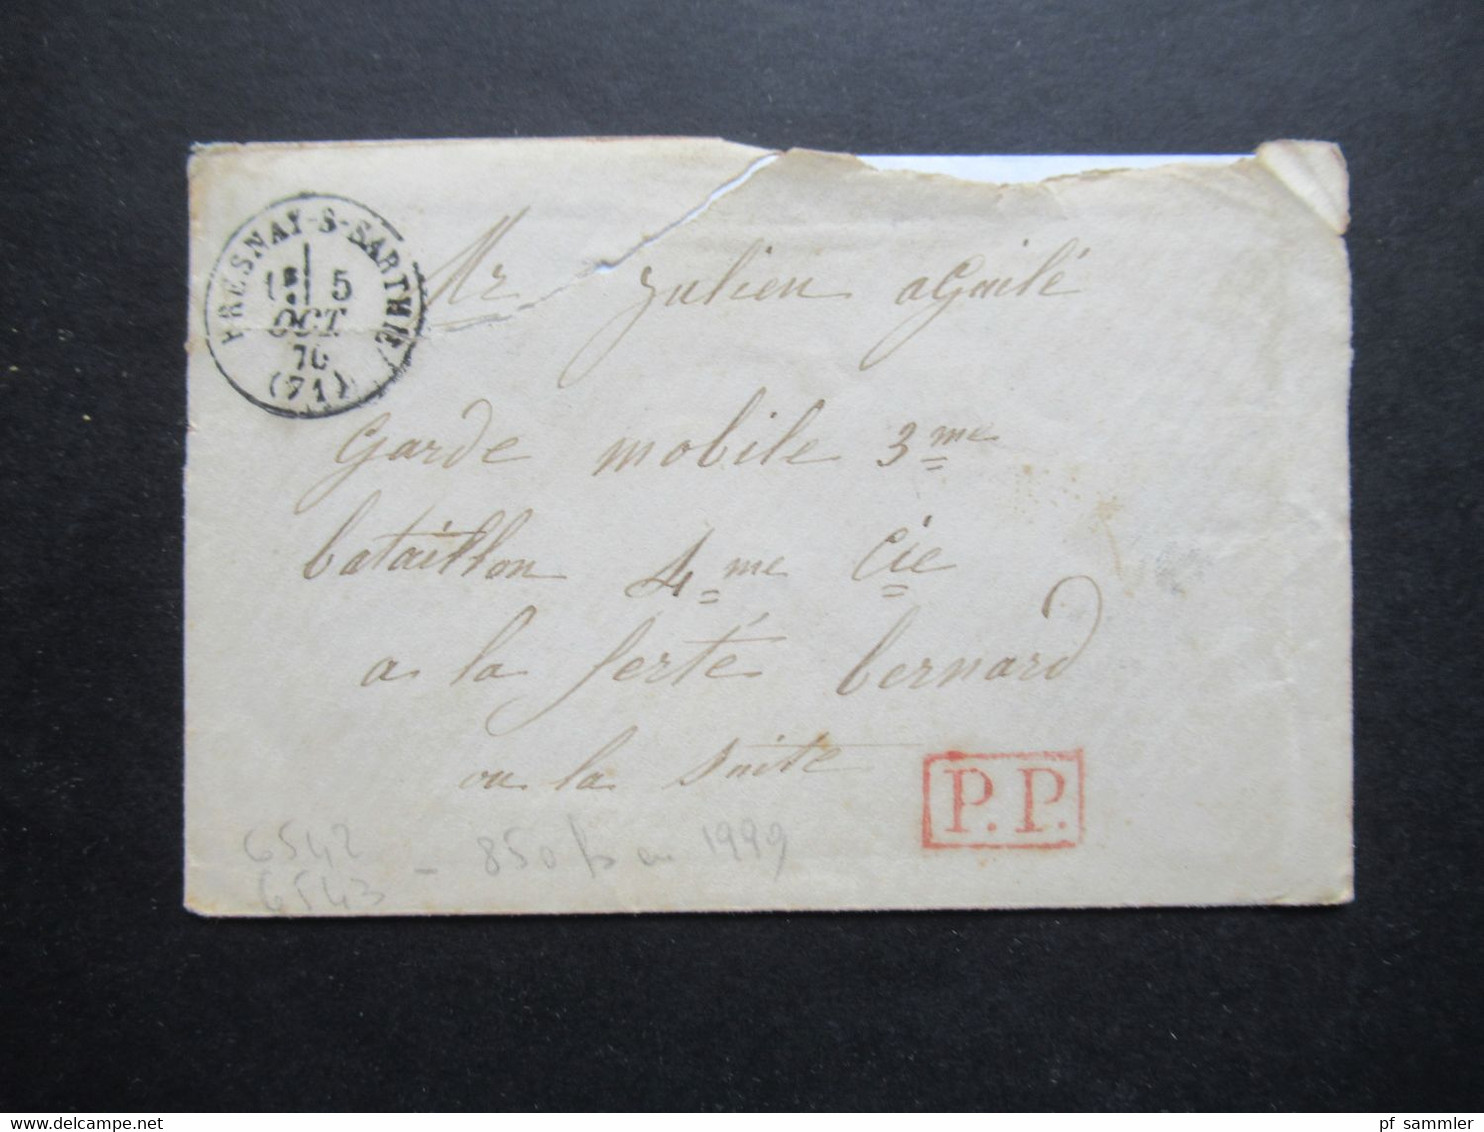 FRESNAY-S-SARTHE
1E 5
OCT.
70
(71)
Mr Julien
Garde mobile 3me
bataillon 4me Cie
a la ferté bernard
ou la suite
P.P.
6542
6543 - 850 fs en 1999
www.delcampe.net
pf_sammler